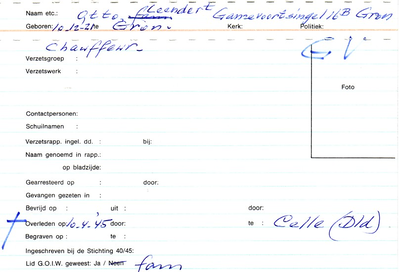 Naam etc.: Otto, Leendert Ganzevoortsingel 16B Gron
Geboren: 10-12-21 te Gron. Kerk: Politiek:
Chauffeur. G V
Verzetsgroep :
Verzetswerk :
Foto
Contactpersonen:
Schuilnamen :
Verzetsrapp. ingel. dd. : bij:
Naam genoemd in rapp.:
op bladzijde:
Gearresteerd op : door:
Gevangen gezeten in :
Bevrijd op : uit : door:
Overleden op 10.4.'45 door: te : Celle (Dld)
Begraven op : te :
Ingeschreven bij de Stichting 40/45:
Lid G.O.I.W. geweest: Ja / Neen fam